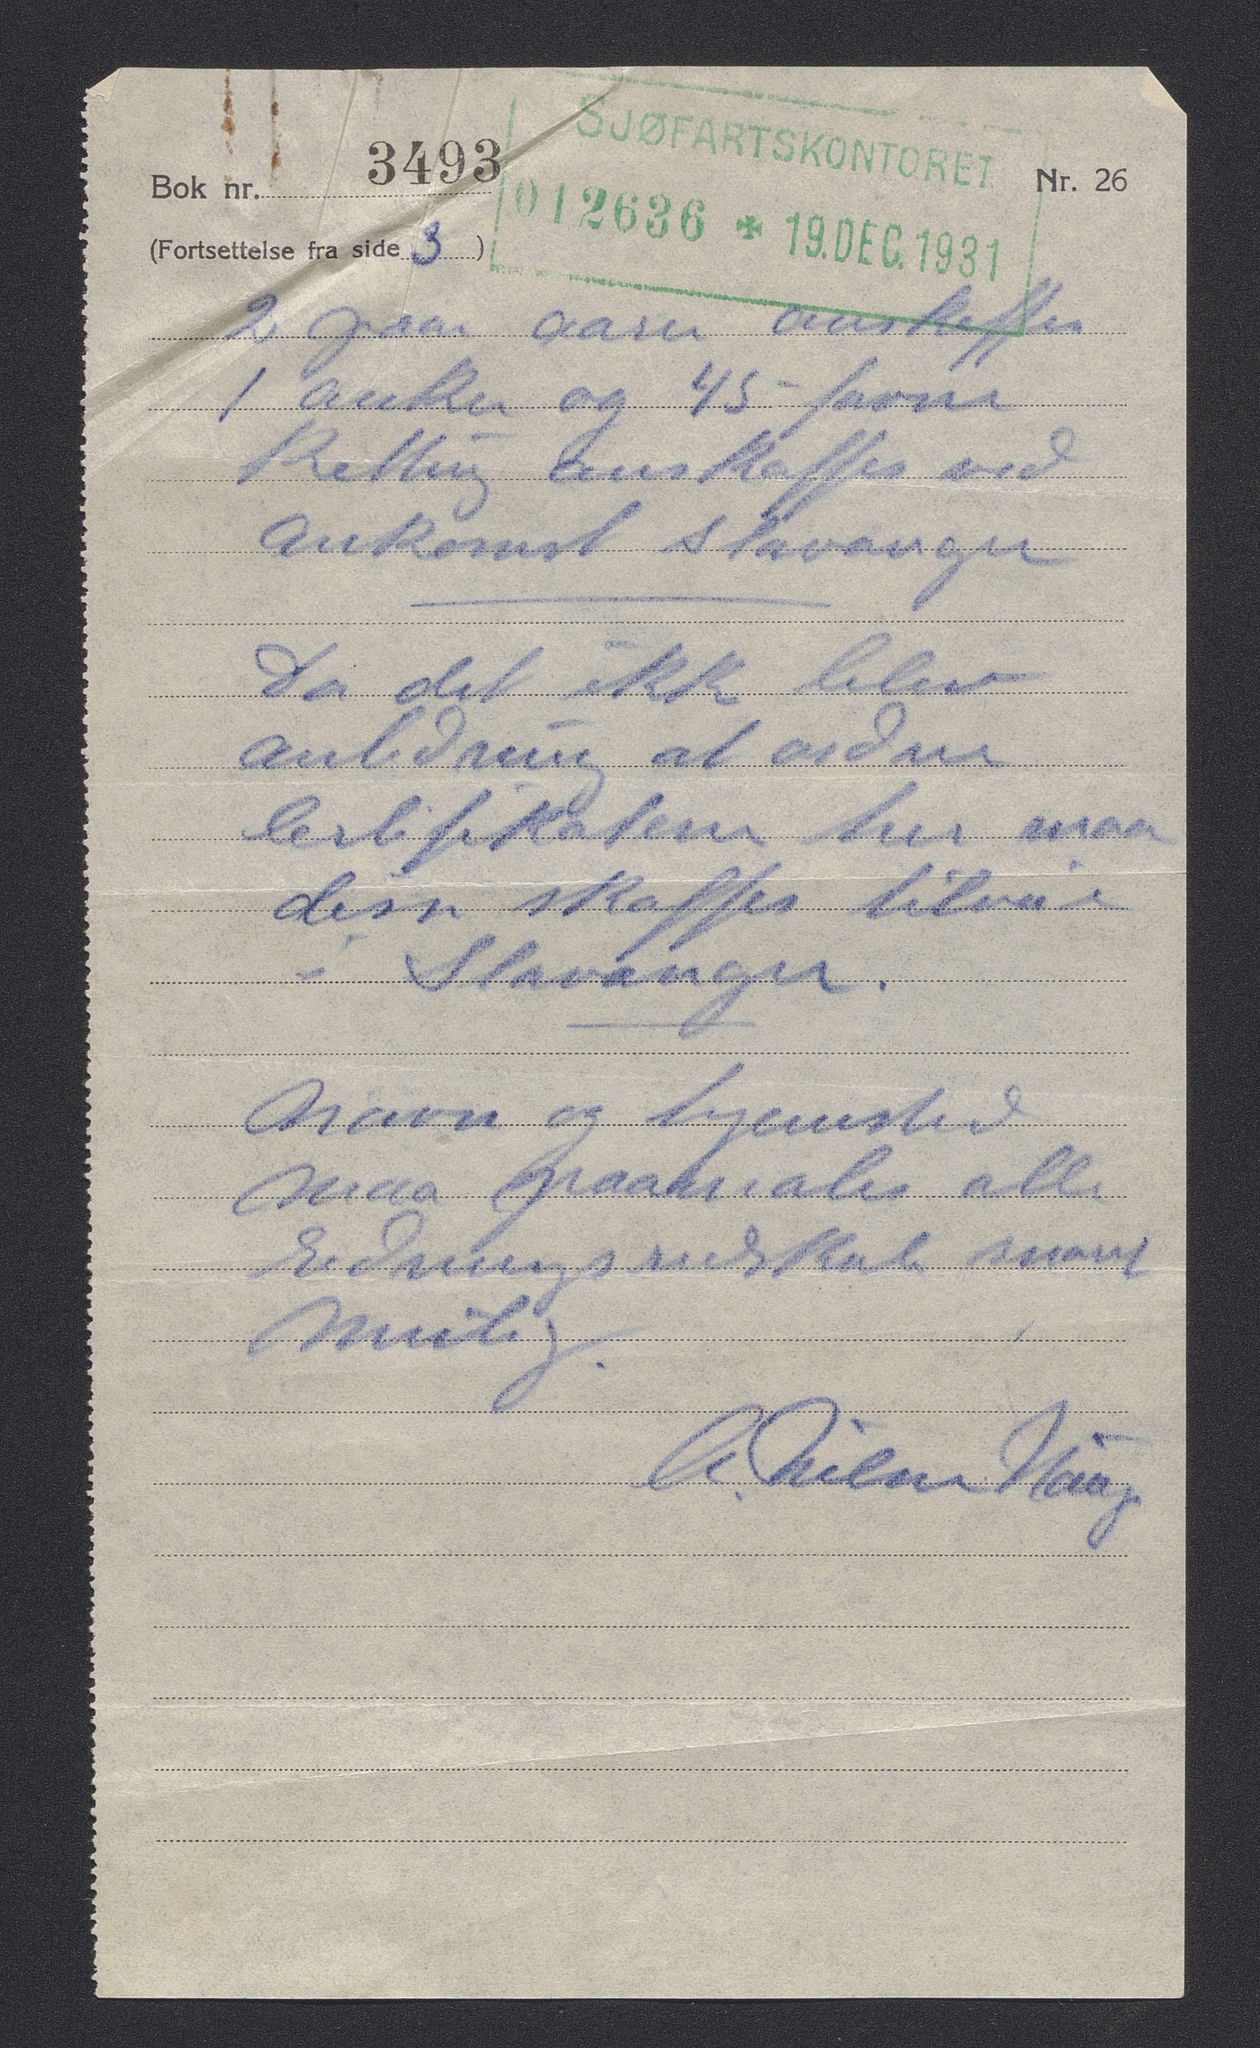 SJØFARTSKONTORET
012636 * 19.DEC.1931
Bok nr. 3493
Nr. 26
(Fortsettelse fra side 3)
2 paar aarer anskaffes
1 anker og 45 favne
Ketting anskaffes ved
ankomst Stavanger
Da det ikk blev
anledning at ordne
Certifikatene her maa
disse skaffes tilveie
i Stavanger.
Navn og hjemsted
maa paamales alle
redningsredskab snart
mulig.
A. Nilsen Haag